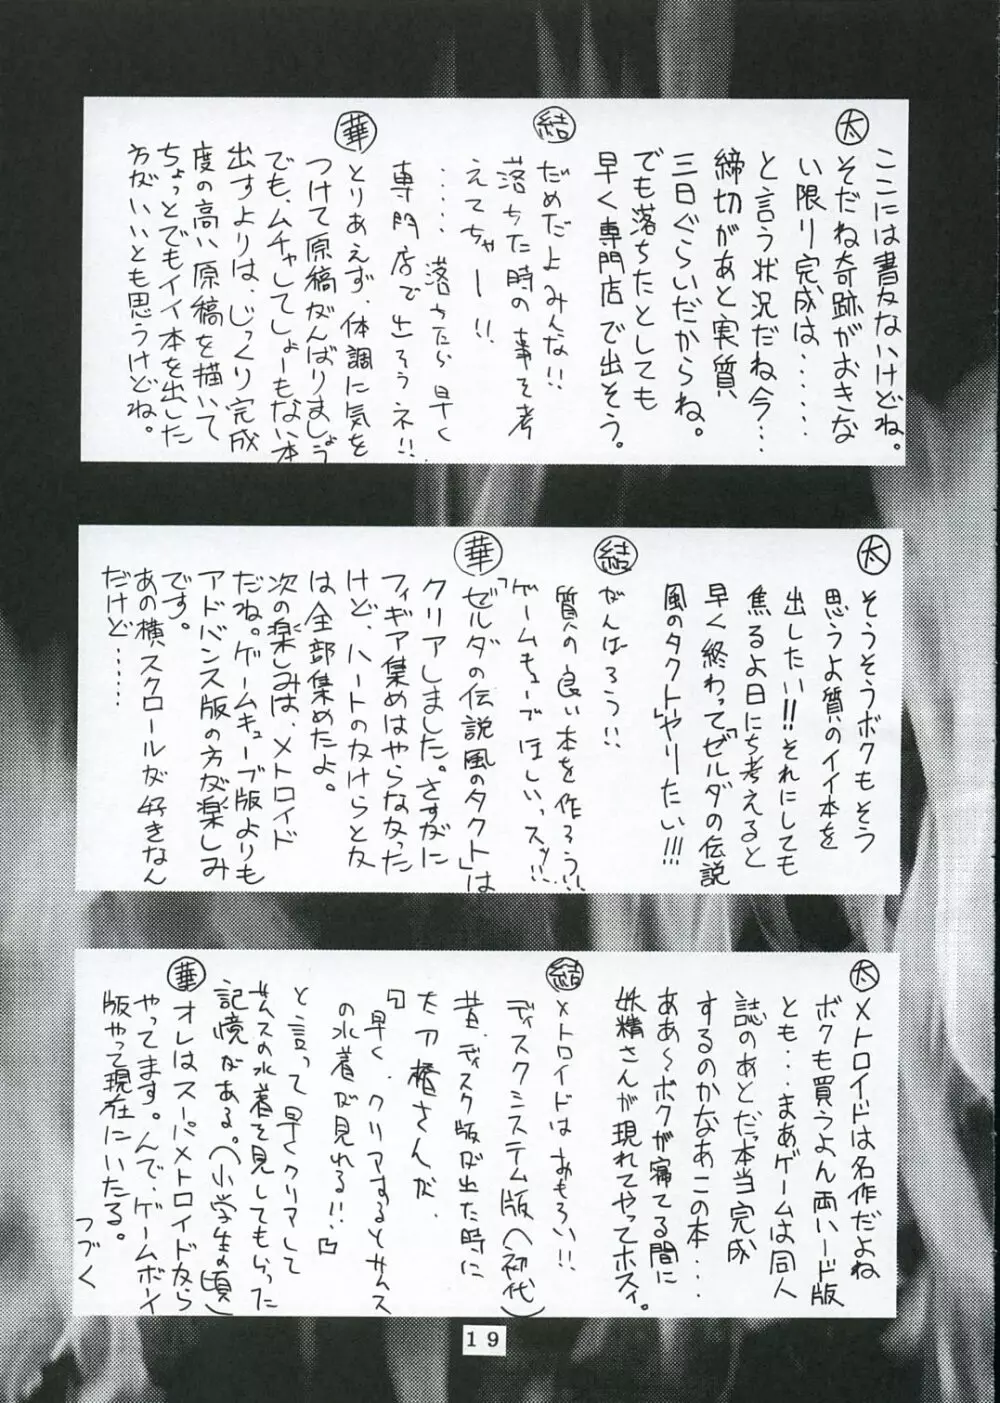 ここには書けないけどね。
太
そだね奇跡がおきな
い限リ完成は・・・・・・
と言う状況だね今・・・
締切があと実質
三日ぐらいだからね。
でも落ちたとしても
早く専門店で出そう。
結
だめだよみんな!!
落ちた時の事を考
えてちゃー!!
・・・・落ちたら早く
専門店で出そうネ!!
華
とりあえず、体調に気を
つけて原稿がんばりましょう
でも、ムチャしてしょーもない本
出すよりは、じっくり完成
度の高い原稿を描いて
ちょっとでもイイ本を出した
方がいいとも思うけどね。
太
そうそうボクもそう
思うよ質のイイ本を
出したい!!それにしても
焦るよ日にち考えると
早く終わって「ゼルダの伝説
風のタクト」ヤリたい!!!
結
がんばろう!!
質の良い本を作ろう!!
ゲームキューブほしいっスッ!!
華
「ゼルダの伝説風のタクト」は
クリアしました。さすがに
フィギア集めはやらなかった
けど、ハートのかけらとか
は全部集めたよ。
次の楽しみは、メトロイド
だね。ゲームキューブ版よりも
アドバンス版の方が楽しみ
です。
あの横スクロールが好きなん
だけど・・・・・・
太
メトロイドは名作だよね
ボクも買うよん両ハード版
とも・・・まあゲームは同人
誌のあとだ本当完成
するのかなあこの本・・・・
ああ〜ボクが寝てる間に
妖精さんが現れてやってホスィ。
結
メトロイドはおもろい!!
ディスクシステム版(初代)
昔、ディスク版が出た時に
大刀橋さんが、
『早く、クリアするとサムス
の水着が見れる!!』
と言って早くクリアして
サムスの水着を見してもらった
記憶がある。(小学生の頃)
華
オレはスーパーメトロイドなら
やってます。んで、ゲームボーイ
版やって現在にいたる。
つづく
19